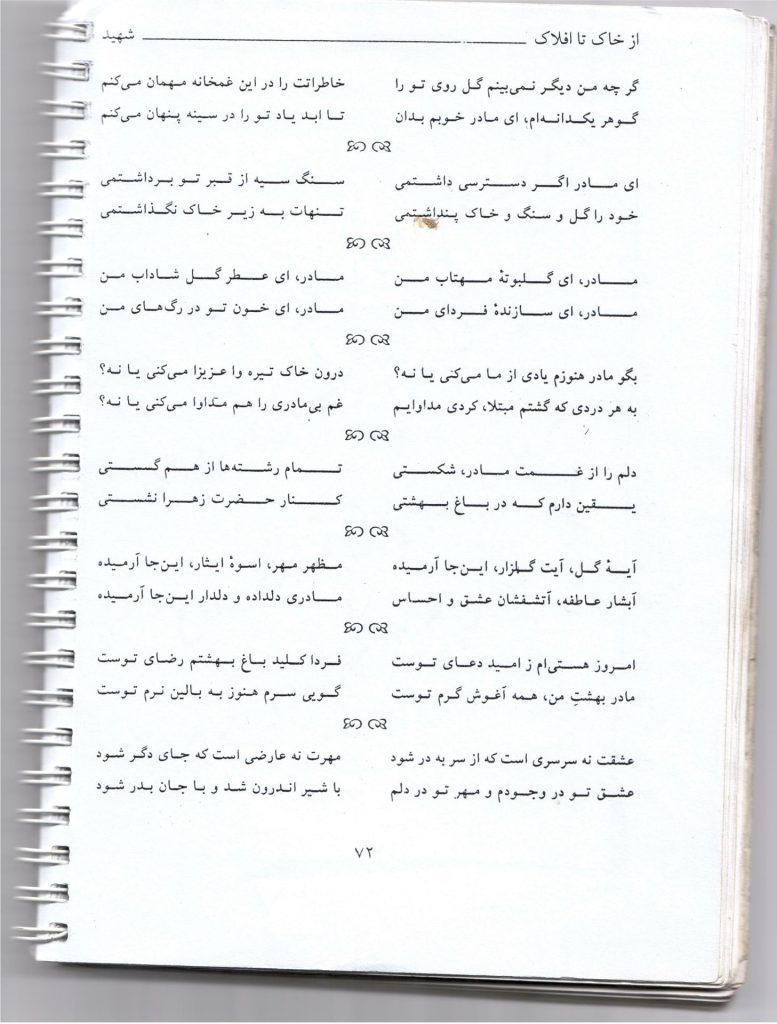 از خاک تا افلاک ــــــــــــــــــــــــ شهید
گر چه من دیگر نمی‌بینم گل روی تو را خاطراتت را در این غمخانه مهمان می‌کنم
گوهر یکدانه‌ام، ای مادر خوبم بدان تا ابد یاد تو را در سینه پنهان می‌کنم
ای مادر اگر دسترسی داشتمی سنگ سیه از قبر تو برداشتمی
خود را گل و سنگ و خاک پنداشتمی تنهات به زیر خاک نگذاشتمی
مادر، ای گلبوتهٔ مهتاب من مادر، ای عطر گل شاداب من
مادر، ای سازندهٔ فردای من مادر، ای خون تو در رگ‌های من
بگو مادر هنوزم یادی از ما می‌کنی یا نه؟ درون خاک تیره وا عزیزا می‌کنی یا نه؟
به هر دردی که گشتم مبتلا، کردی مداوایم غم بی‌مادری را هم مداوا می‌کنی یا نه؟
دلم را از غمت مادر، شکستی تمام رشته‌ها از هم گسستی
یقین دارم که در باغ بهشتی کنار حضرت زهرا نشستی
آیهٔ گل، آیت گلزار، این‌جا آرمیده مظهر مهر، اسوهٔ ایثار، این‌جا آرمیده
آبشار عاطفه، آتشفشان عشق و احساس مادری دلداده و دلدار این‌جا آرمیده
امروز هستی‌ام ز امید دعای توست فردا کلید باغ بهشتم رضای توست
مادر بهشتِ من، همه آغوش گرم توست گویی سرم هنوز به بالین نرم توست
عشقت نه سرسری است که از سر به در شود مهرت نه عارضی است که جای دگر شود
عشق تو در وجودم و مهر تو در دلم با شیر اندرون شد و با جان بدر شود
۷۲